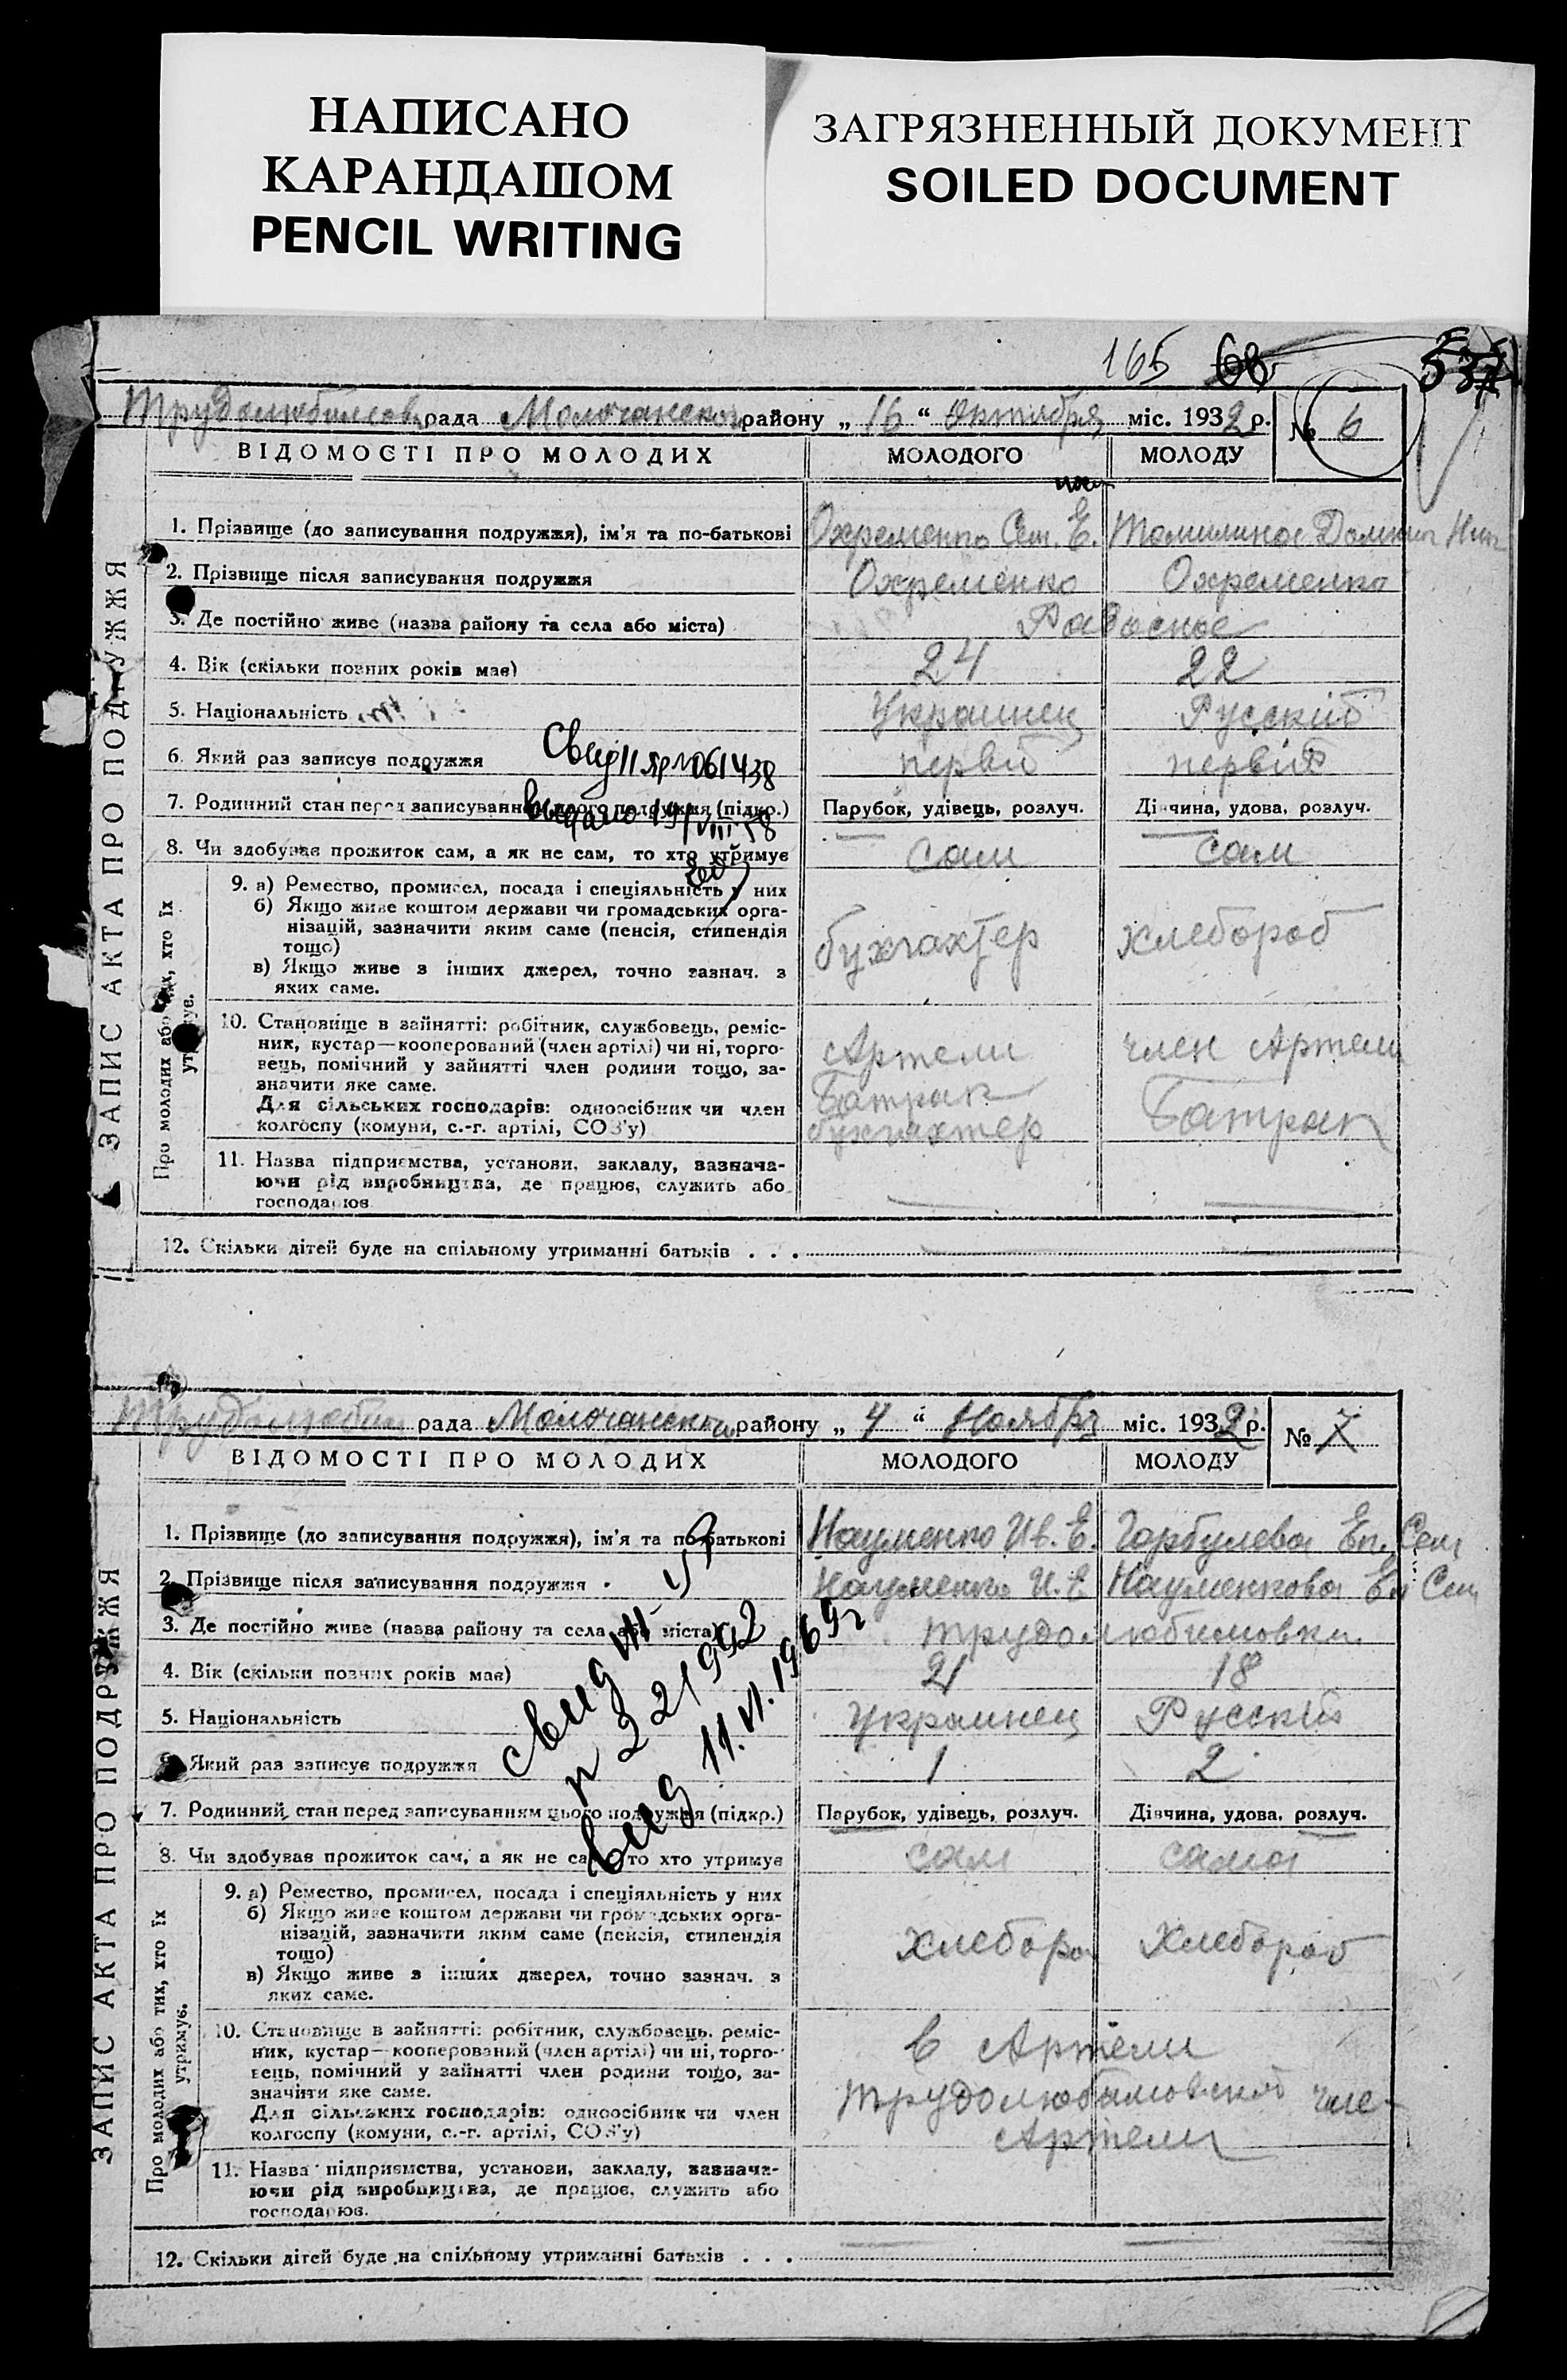 НАПИСАНО
КАРАНДАШОМ
PENCIL WRITING
ЗАГРЯЗНЕННЫЙ ДОКУМЕНТ
SOILED DOCUMENT
165 68 537
рада Молочанск району „16“ Октября міс. 1932 р. № 6
ВІДОМОСТІ ПРО МОЛОДИХ МОЛОДОГО МОЛОДУ
ЗАПИС АКТА ПРО ПОДРУЖЖЯ
1. Прізвище (до записування подружжя), ім'я та по-батькові Охременко Сем. Е. Томилина
2. Прізвище після записування подружжя Охременко Охременко
3. Де постійно живе (назва району та села або міста)
4. Вік (скільки повних років має) 24 22
5. Національність Украинец Русский
6. Який раз записує подружжя первий первий
Свид II 061438
7. Родинний стан перед записуванням цього подружжя (підкр.) Парубок, удівець, розлуч. Дівчина, удова, розлуч.
видано 19/VIII-58
8. Чи здобував прожиток сам, а як не сам, то хто утримує сам сам
Про молодих або тих, хто їх утримує.
9. а) Ремество, промисел, посада і спеціяльність у них
б) Якщо живе коштом держави чи громадських орга-
нізацій, зазначити яким саме (пенсія, стипендія
тощо) бухгахтер хлебороб
в) Якщо живе з інших джерел, точно зазнач. з
яких саме.
10. Становище в зайнятті: робітник, службовець, реміс-
ник, кустар—кооперований (член артілі) чи ні, торго- Артели член Артели
вець, помічний у зайнятті член родини тощо, за-
значити яке саме. Батрак
Для сільських господарів: одноосібник чи член Батрак
колгоспу (комуни, с.-г. артілі, СОЗ'у) бухгахтер
11. Назва підприємства, установи, закладу, зазнача-
ючи рід виробництва, де працює, служить або
господарює
12. Скільки дітей буде на спільному утриманні батьків . . .
рада Молочанск району „4“ Ноября міс. 1932 р. № 7
ВІДОМОСТІ ПРО МОЛОДИХ МОЛОДОГО МОЛОДУ
ЗАПИС АКТА ПРО ПОДРУЖЖЯ
1. Прізвище (до записування подружжя), ім'я та по-батькові Науменко Ив. Е. Гарбулева Еп. Сем
2. Прізвище після записування подружжя Науменко И. Е Науменкова Еп Сем
3. Де постійно живе (назва району та села або міста) Трудолюбимовки
4. Вік (скільки повних років має) 21 18
5. Національність Украинец Русский
6. Який раз записує подружжя 1 2
свид III
N 221992
вид 11.VI.1969г
7. Родинний стан перед записуванням цього подружжя (підкр.) Парубок, удівець, розлуч. Дівчина, удова, розлуч.
8. Чи здобував прожиток сам, а як не сам, то хто утримує сам сама
Про молодих або тих, хто їх утримує.
9. а) Ремество, промисел, посада і спеціяльність у них
б) Якщо живе коштом держави чи громадських орга-
нізацій, зазначити яким саме (пенсія, стипендія
тощо) хлебороб Хлебороб
в) Якщо живе з інших джерел, точно зазнач. з
яких саме.
10. Становище в зайнятті: робітник, службовець, реміс-
ник, кустар—кооперований (член артілі) чи ні, торго- в Артели
вець, помічний у зайнятті член родини тощо, за-
значити яке саме. Трудолюбимовской чле-
Для сільських господарів: одноосібник чи член
колгоспу (комуни, с.-г. артілі, СОЗ'у) Артели
11. Назва підприємства, установи, закладу, зазнача-
ючи рід виробництва, де працює, служить або
господарює.
12. Скільки дітей буде на спільному утриманні батьків . . .